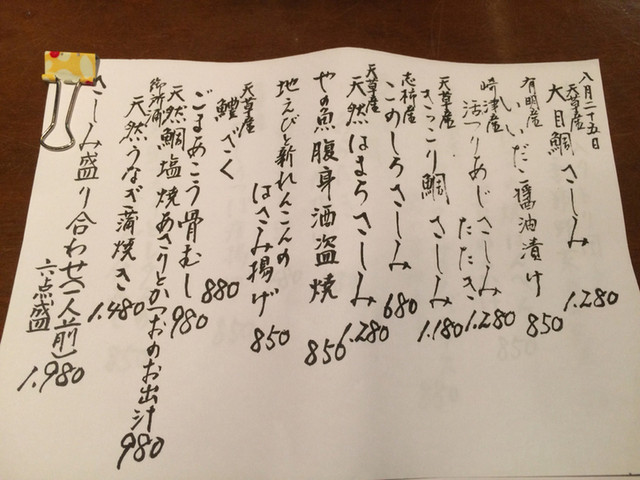 八月二十五日
天草産
大目鯛 さしみ 1.280
有明産
いいだこ醤油漬け 850
崎津産
活つりあじ さしみ たたき 1.280
天草産
きっこり鯛 さしみ 1.180
志柿産
このしろさしみ 680
天草産
天然はまちさしみ 1.280
やの魚腹身酒盗焼 850
地えびと新れんこんの
はさみ揚げ 850
天草産
鱧ざく 880
ごまあこう骨むし 980
天然鯛塩焼あさりとかつおのお出汁 980
御所浦
天然うなぎ蒲焼き 1.480
さしみ盛り合わせ(一人前)
六点盛 1.980